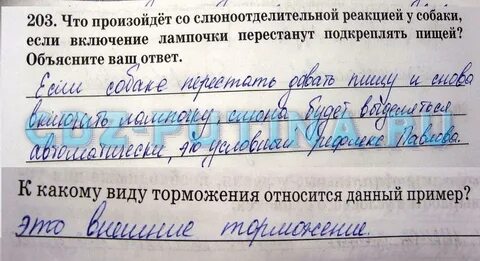 203. Что произойдёт со слюноотделительной реакцией у собаки,
если включение лампочки перестанут подкреплять пищей?
Объясните ваш ответ.
Если собаке перестать давать пищу и снова
включить лампочку слюна будет выделяться
автоматически, это условный рефлекс Павлова.
К какому виду торможения относится данный пример?
это внешние торможение.